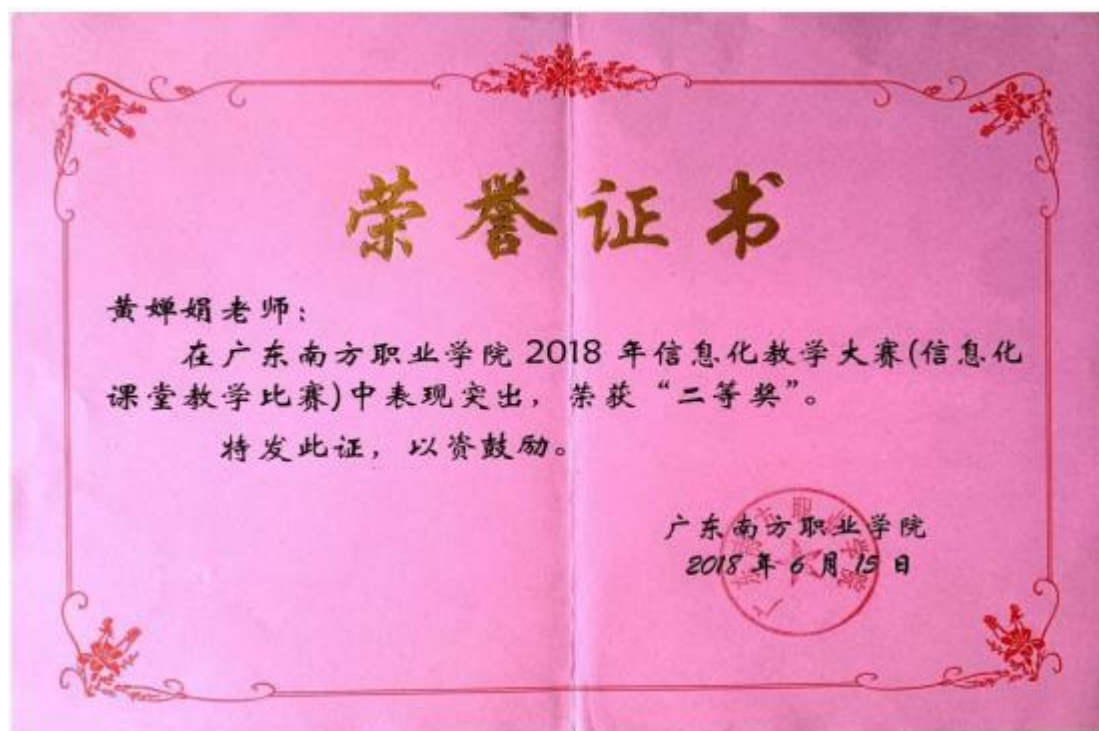 荣誉证书
黄婵娟老师：
在广东南方职业学院 2018 年信息化教学大赛(信息化
课堂教学比赛)中表现突出，荣获“二等奖”。
特发此证，以资鼓励。
广东南方职业学院
2018 年 6 月 15 日
广东南方职业学院